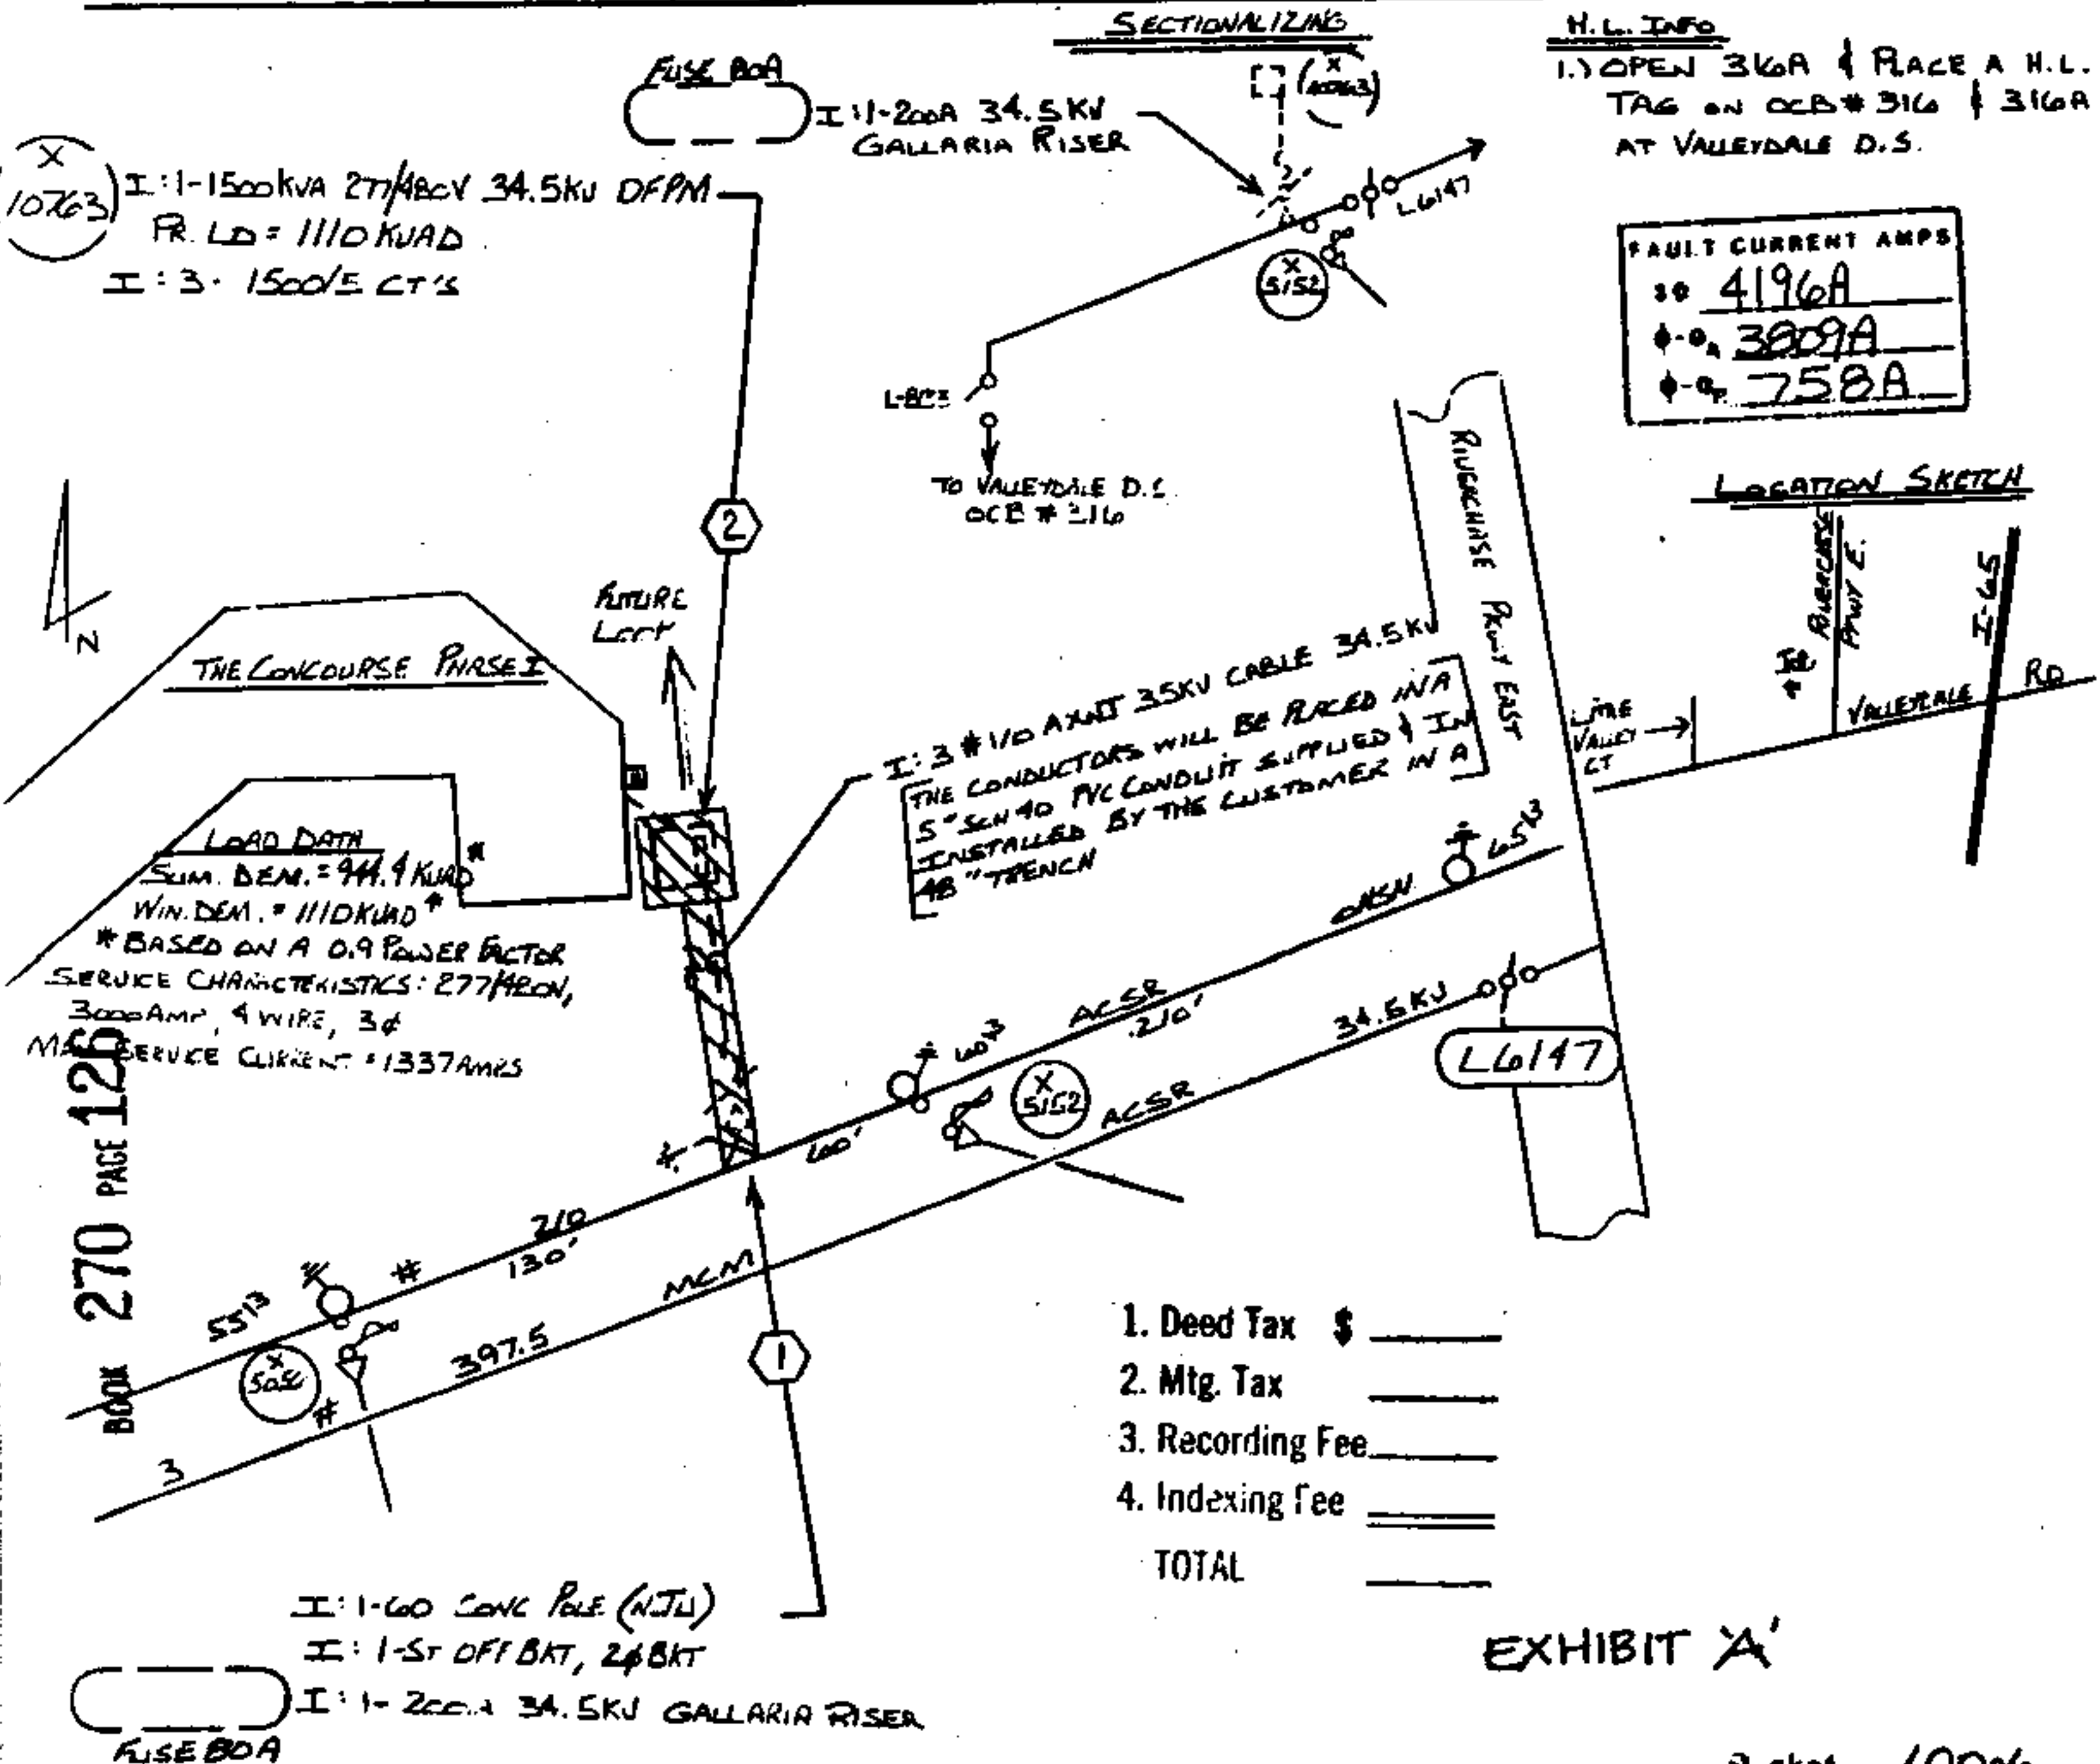 SECTIONALIZING
H.L. INFO
1.) OPEN 316A & PLACE A H.L.
TAG ON OCB # 316 & 316A
AT VALLEYDALE D.S.
FUSE 80A
I: 1-200A 34.5 KV
GALLARIA RISER
X
10763
X
10763
I: 1-1500 KVA 277/480V 34.5KV DFPM
PR. LD = 1110 KVAD
I: 3- 1500/5 CT'S
L6147
X
5152
FAULT CURRENT AMPS
3Φ 4196A
3809A
758A
TO VALLEYDALE D.S.
OCB # 316
RIVERCHASE PKWY EAST
LOCATION SKETCH
RIVERCHASE
PKWY E.
I-65
VALLEYDALE RD
LITTLE
VALLEY
CT
2
N
FUTURE
LOOP
THE CONCOURSE PHASE I
I: 3 # 1/0 AXNJ 35KV CABLE 34.5KV
THE CONDUCTORS WILL BE PLACED IN A
5" SCH 40 PVC CONDUIT SUPPLIED & IN
INSTALLED BY THE CUSTOMER IN A
48" TRENCH
LOAD DATA
SUM. DEM. = 944.4 KVAD *
WIN. DEM. = 1110 KVAD *
* BASED ON A 0.9 POWER FACTOR
SERVICE CHARACTERISTICS: 277/480V,
3000 AMP, 4 WIRE, 3Φ
MAX SERVICE CURRENT = 1337 AMPS
BOOK 270 PAGE 126
55 13
# 2/0 ACSR
130'
60'
60 3
210'
65 13
X
5152
3 # 397.5 MCM ACSR 34.5 KV
L6147
1
1. Deed Tax $
2. Mtg. Tax
3. Recording Fee
4. Indexing Fee
TOTAL
I: 1-60 CONC POLE (NJU)
I: 1-ST OFF BKT, 2Φ BKT
I: 1-200A 34.5KV GALLARIA RISER
FUSE 80A
EXHIBIT 'A'